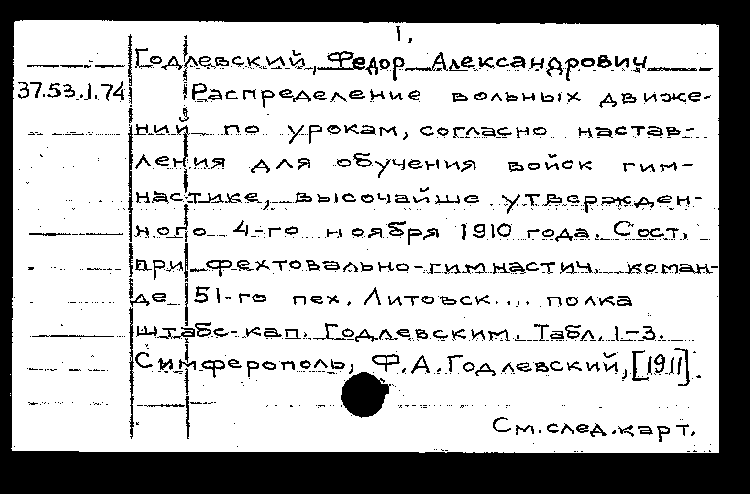 1.
Годлевский, Федор Александрович
37.53.1.74 Распределение вольных движе-
ний по урокам, согласно настав-
ления для обучения войск гим-
настике, высочайше утвержден-
ного 4-го ноября 1910 года. Сост.
при фехтовально-гимнастич. коман-
де 51-го пех. Литовск... полка
штабс-кап. Годлевским. Табл. 1-3.
Симферополь, Ф.А.Годлевский, [1911].
См.след.карт.